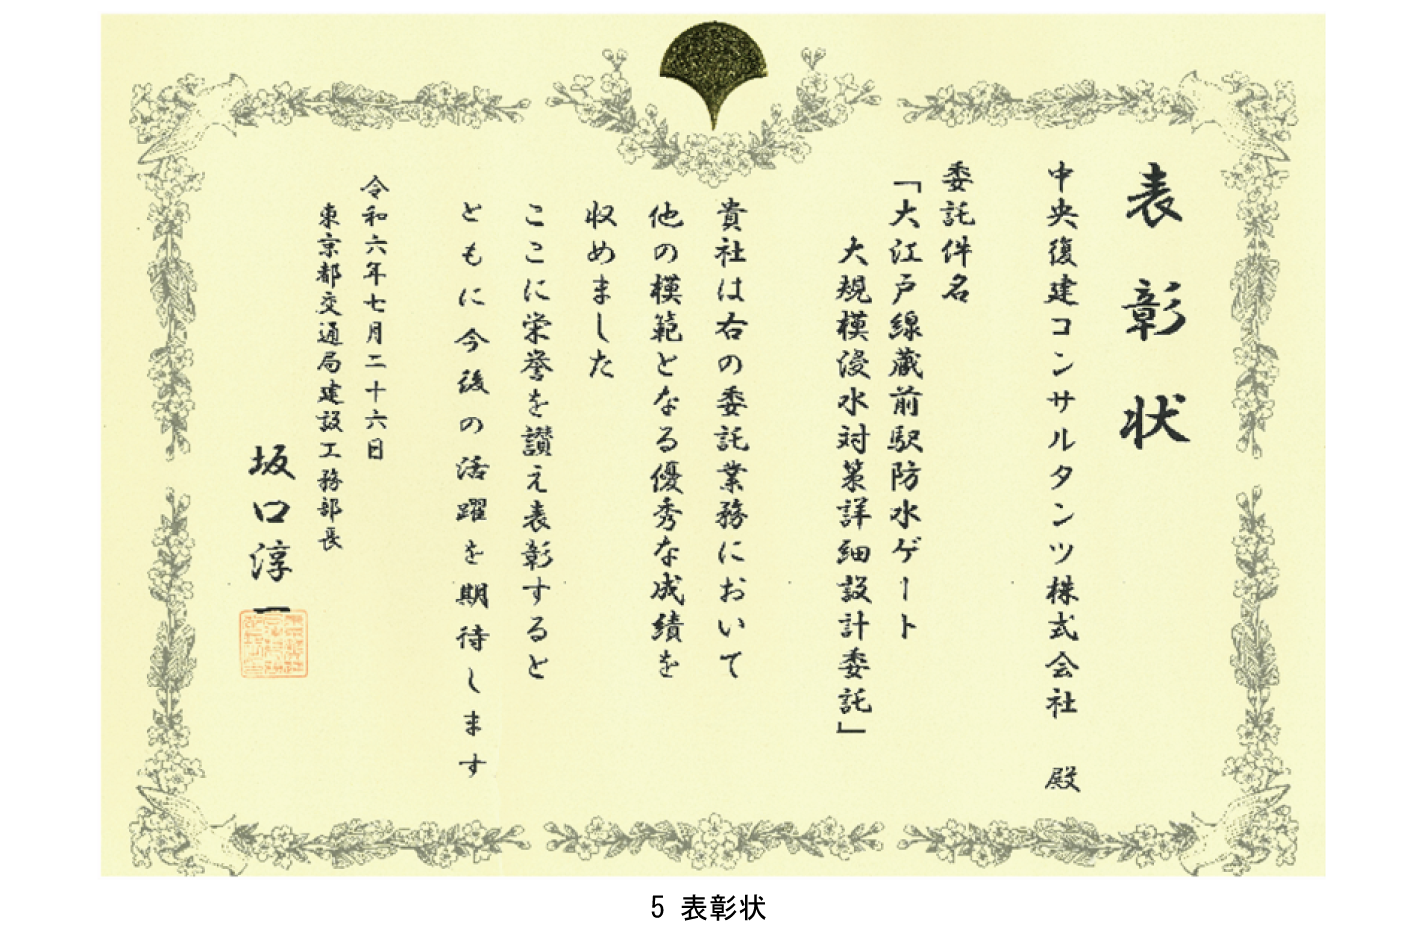 表彰状
中央復建コンサルタンツ株式会社 殿
委託件名
「大江戸線蔵前駅防水ゲート
大規模浸水対策詳細設計委託」
貴社は右の委託業務において
他の模範となる優秀な成績を
収めました
ここに栄誉を讃え表彰すると
ともに今後の活躍を期待します
令和六年七月二十六日
東京都交通局建設工務部長
坂口淳一
5 表彰状